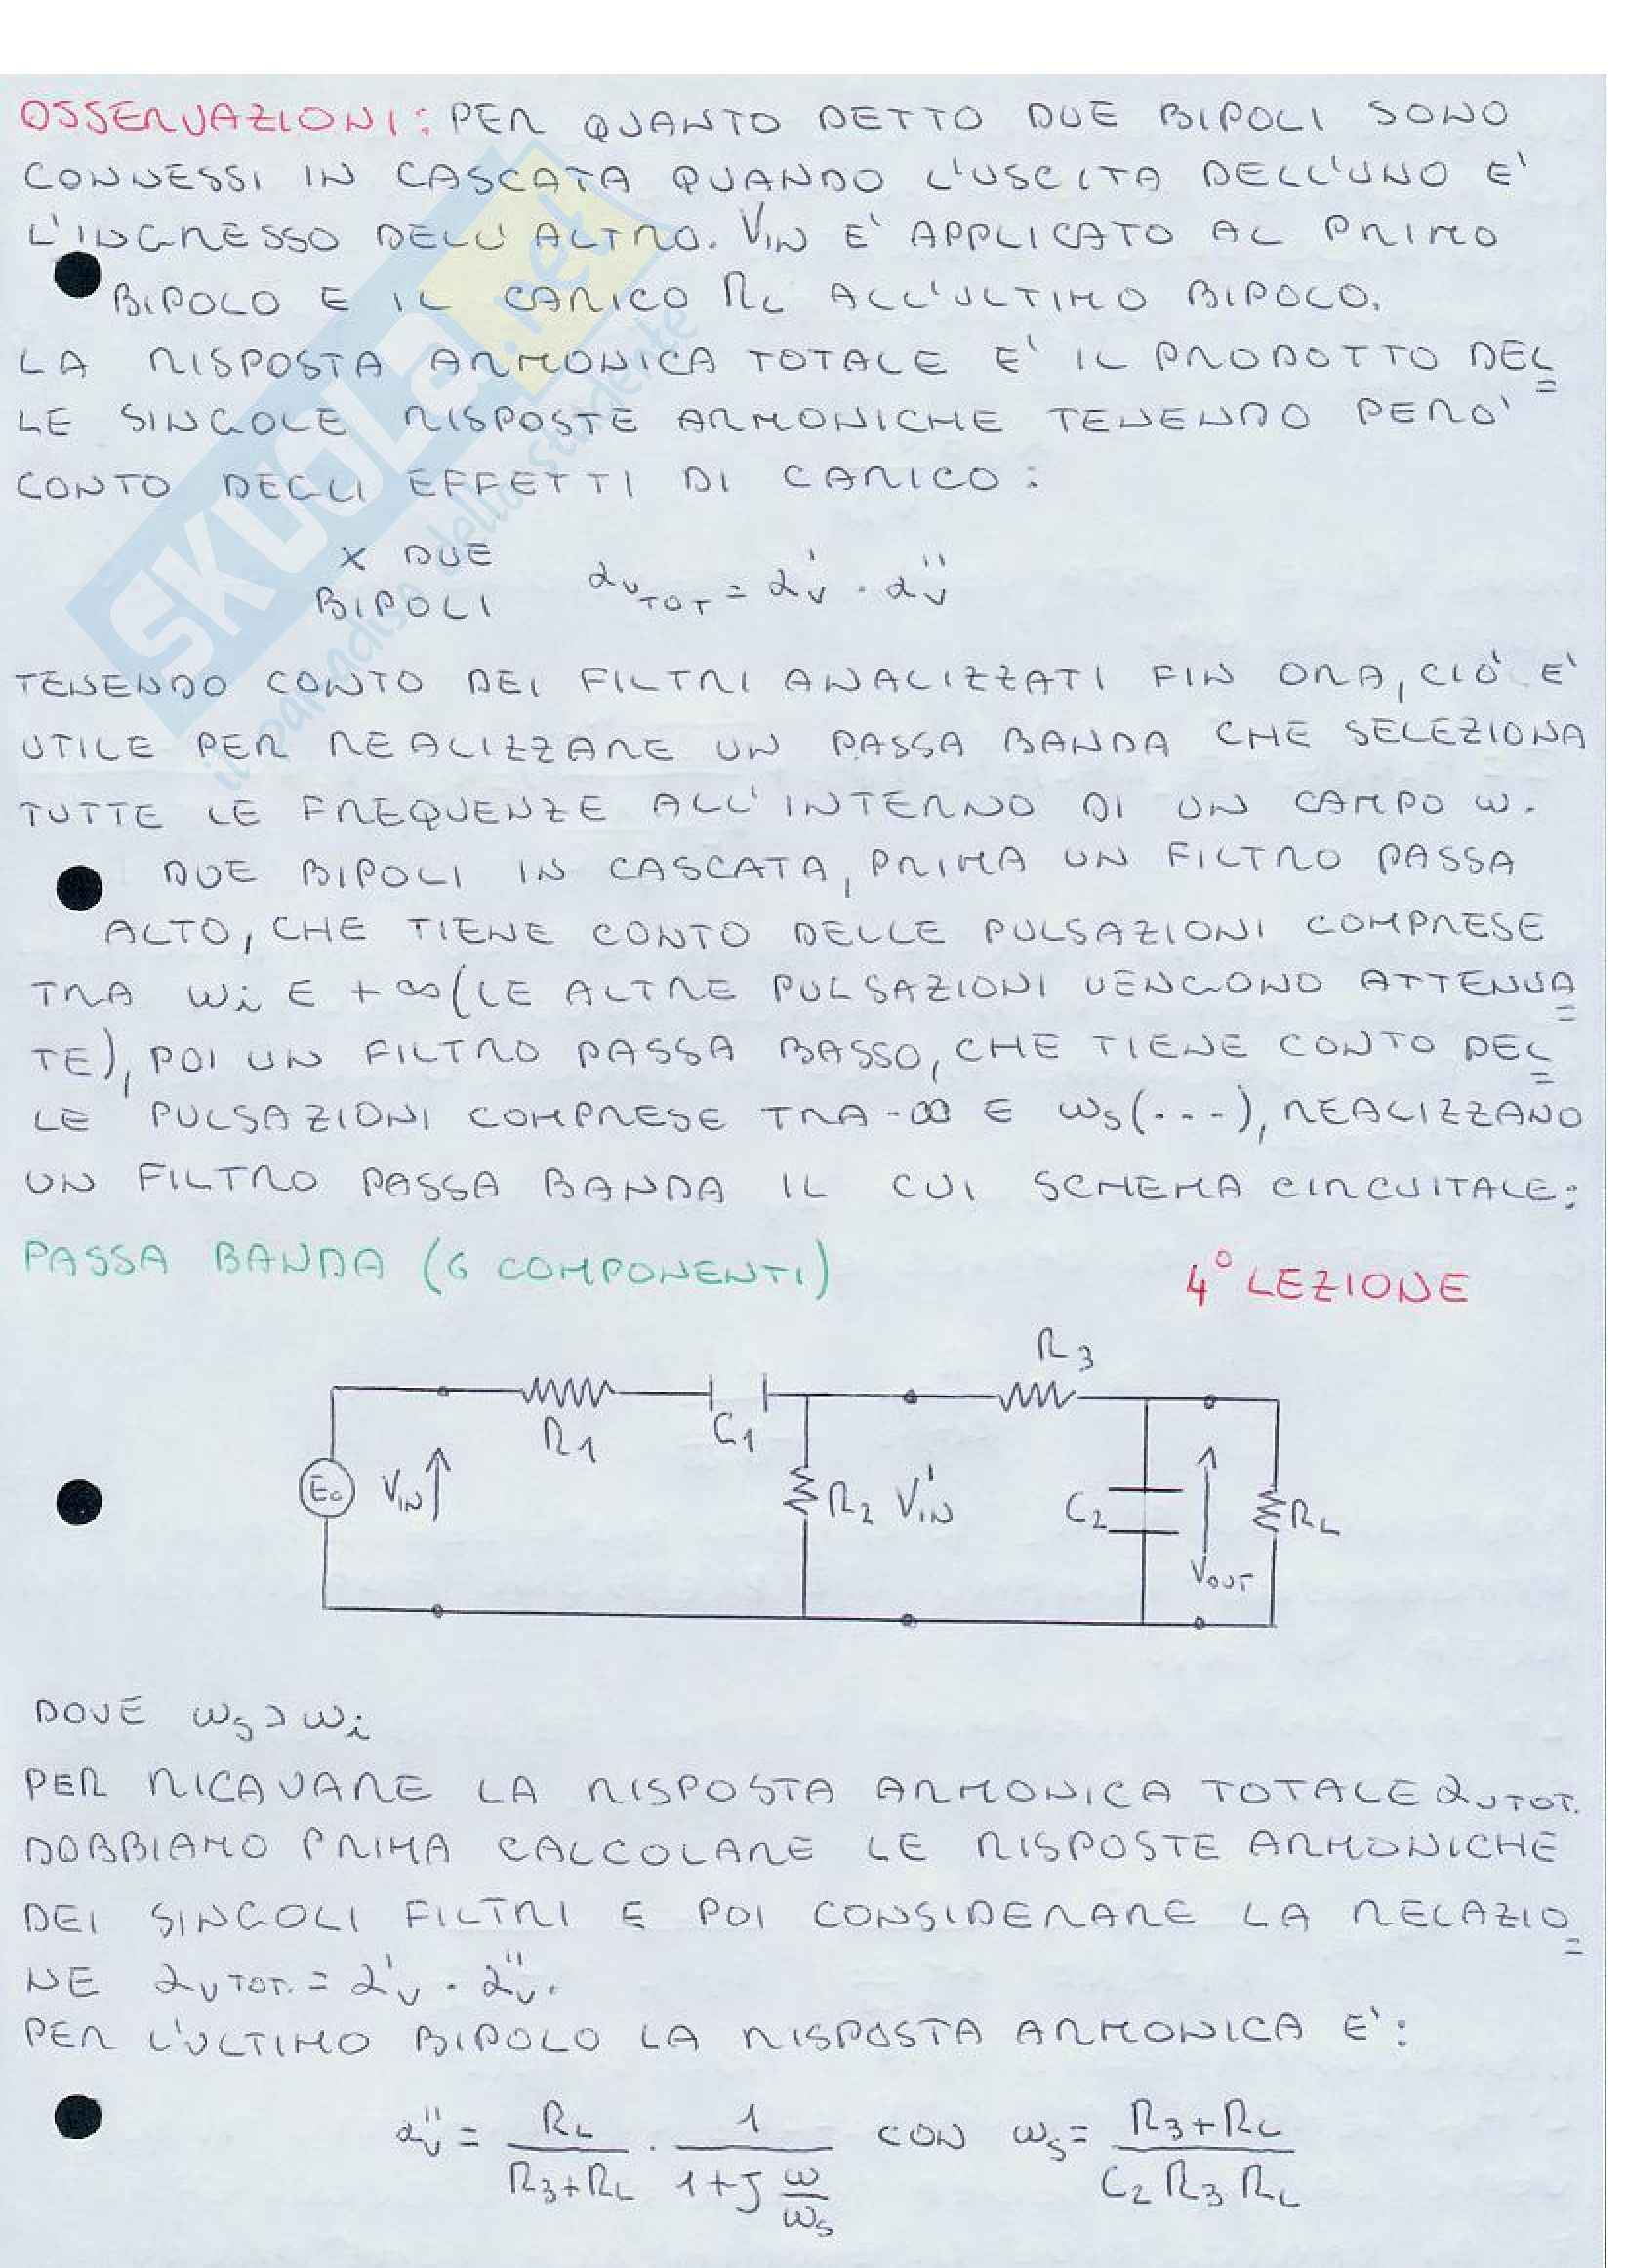 OSSERVAZIONI: PER QUANTO DETTO DUE BIPOLI SONO
CONNESSI IN CASCATA QUANDO L'USCITA DELL'UNO E'
L'INGRESSO DELL'ALTRO. VIN E' APPLICATO AL PRIMO
BIPOLO E IL CARICO RL ALL'ULTIMO BIPOLO.
LA RISPOSTA ARMONICA TOTALE E' IL PRODOTTO DEL=
LE SINGOLE RISPOSTE ARMONICHE TENENDO PERO'
CONTO DEGLI EFFETTI DI CARICO:
X DUE
BIPOLI αv TOT = α'v · α''v
TENENDO CONTO DEI FILTRI ANALIZZATI FIN ORA, CIÒ E'
UTILE PER REALIZZARE UN PASSA BANDA CHE SELEZIONA
TUTTE LE FREQUENZE ALL'INTERNO DI UN CAMPO ω.
DUE BIPOLI IN CASCATA, PRIMA UN FILTRO PASSA
ALTO, CHE TIENE CONTO DELLE PULSAZIONI COMPRESE
TRA ωi E +∞ (LE ALTRE PULSAZIONI VENGONO ATTENUA=
TE), POI UN FILTRO PASSA BASSO, CHE TIENE CONTO DEL=
LE PULSAZIONI COMPRESE TRA -∞ E ωs (...), REALIZZANO
UN FILTRO PASSA BANDA IL CUI SCHEMA CIRCUITALE:
PASSA BANDA (6 COMPONENTI) 4° LEZIONE
R3
R1 C1
EG VIN R2 V'IN C2 RL
VOUT
DOVE ωs > ωi
PER RICAVARE LA RISPOSTA ARMONICA TOTALE αv TOT.
DOBBIAMO PRIMA CALCOLARE LE RISPOSTE ARMONICHE
DEI SINGOLI FILTRI E POI CONSIDERARE LA RELAZIO=
NE αv TOT. = α'v · α''v.
PER L'ULTIMO BIPOLO LA RISPOSTA ARMONICA E':
α''v = RL / (R3+RL) · 1 / (1+J ω/ωs) CON ωs = (R3+RL) / (C2 R3 RL)
SKUOLA.net
il paradiso dello studente